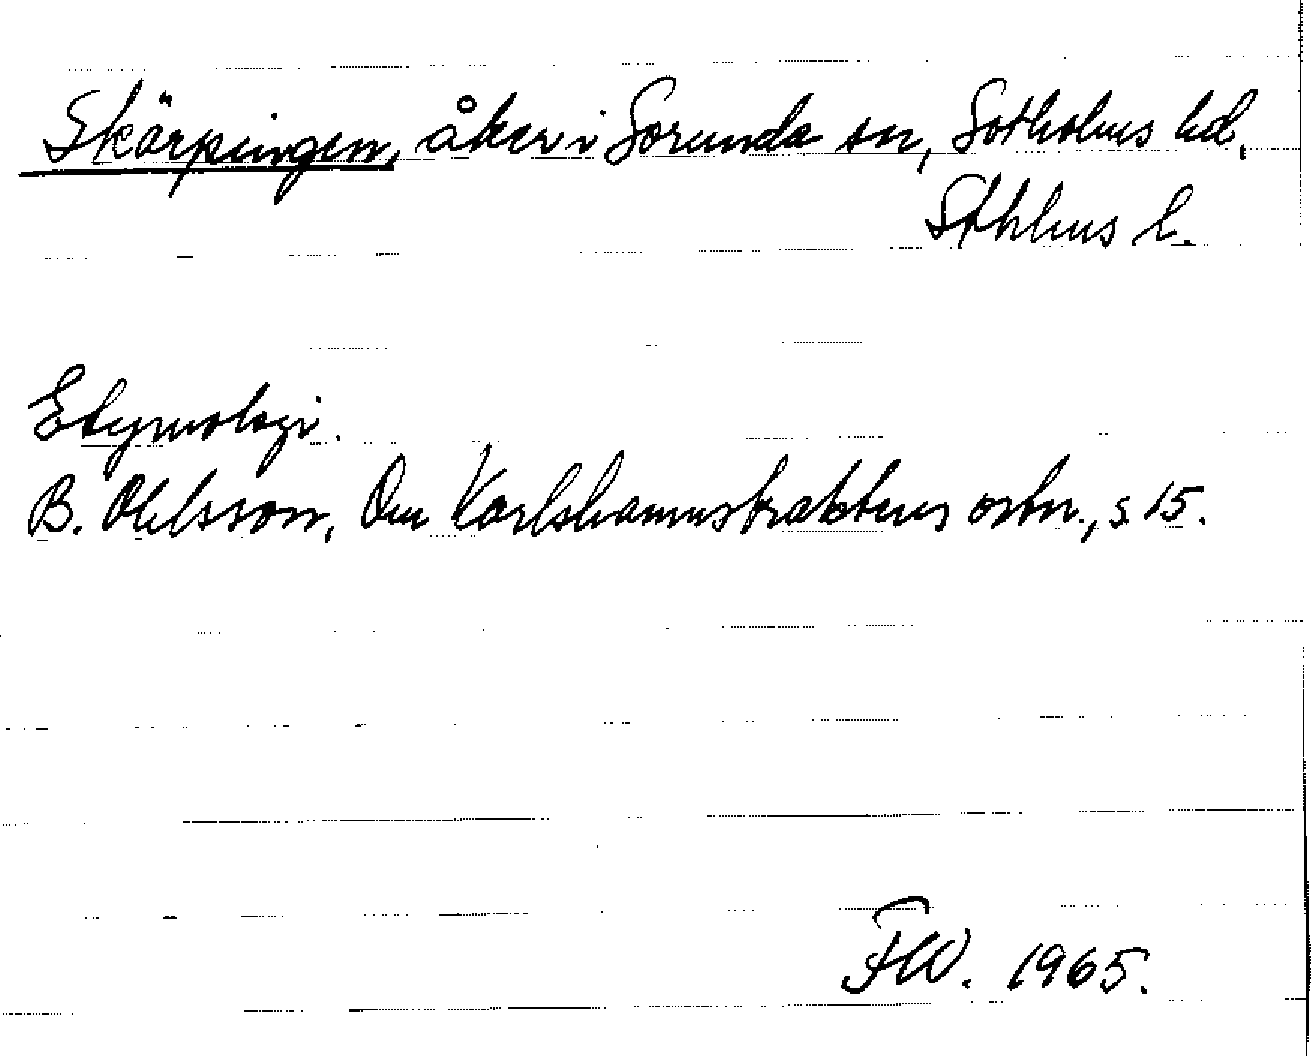 Skärpingen, åker i Sorunda sn, Sotholms hd,
Sthlms l.
Etymologi.
B. Ohlsson, Om Karlshamnstraktens ortn., s. 15.
FW. 1965.